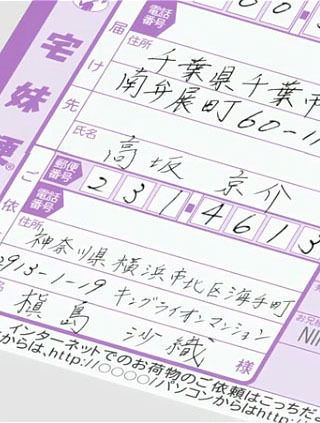 電話番号
宅妹便
お届け先
住所
千葉県千葉市
南弁展町60-11
氏名
高坂 京介
ご依
郵便番号
231-4613
電話番号
住所
神奈川県横浜市北区海手町
2913-1-19 キングライオンマンション
槇島 沙織 様
インターネットでのお荷物のご依頼はこっちだよ
からは、http://〇〇〇〇/パソコンからはhttp://